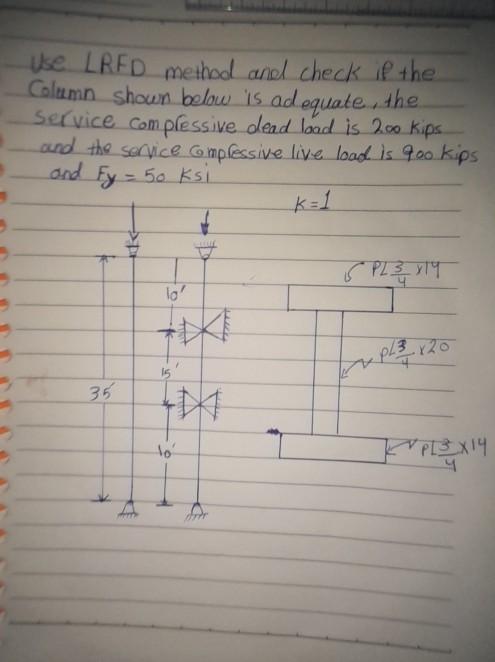 Use LRFD method and check if the
Column shown below is adequate, the
service compressive dead load is 200 kips
and the service compressive live load is 900 kips
and Fy = 50 ksi
K=1
PL 3/4 x14
10'
PL 3/4 x20
15'
35
10'
PL 3/4 x14